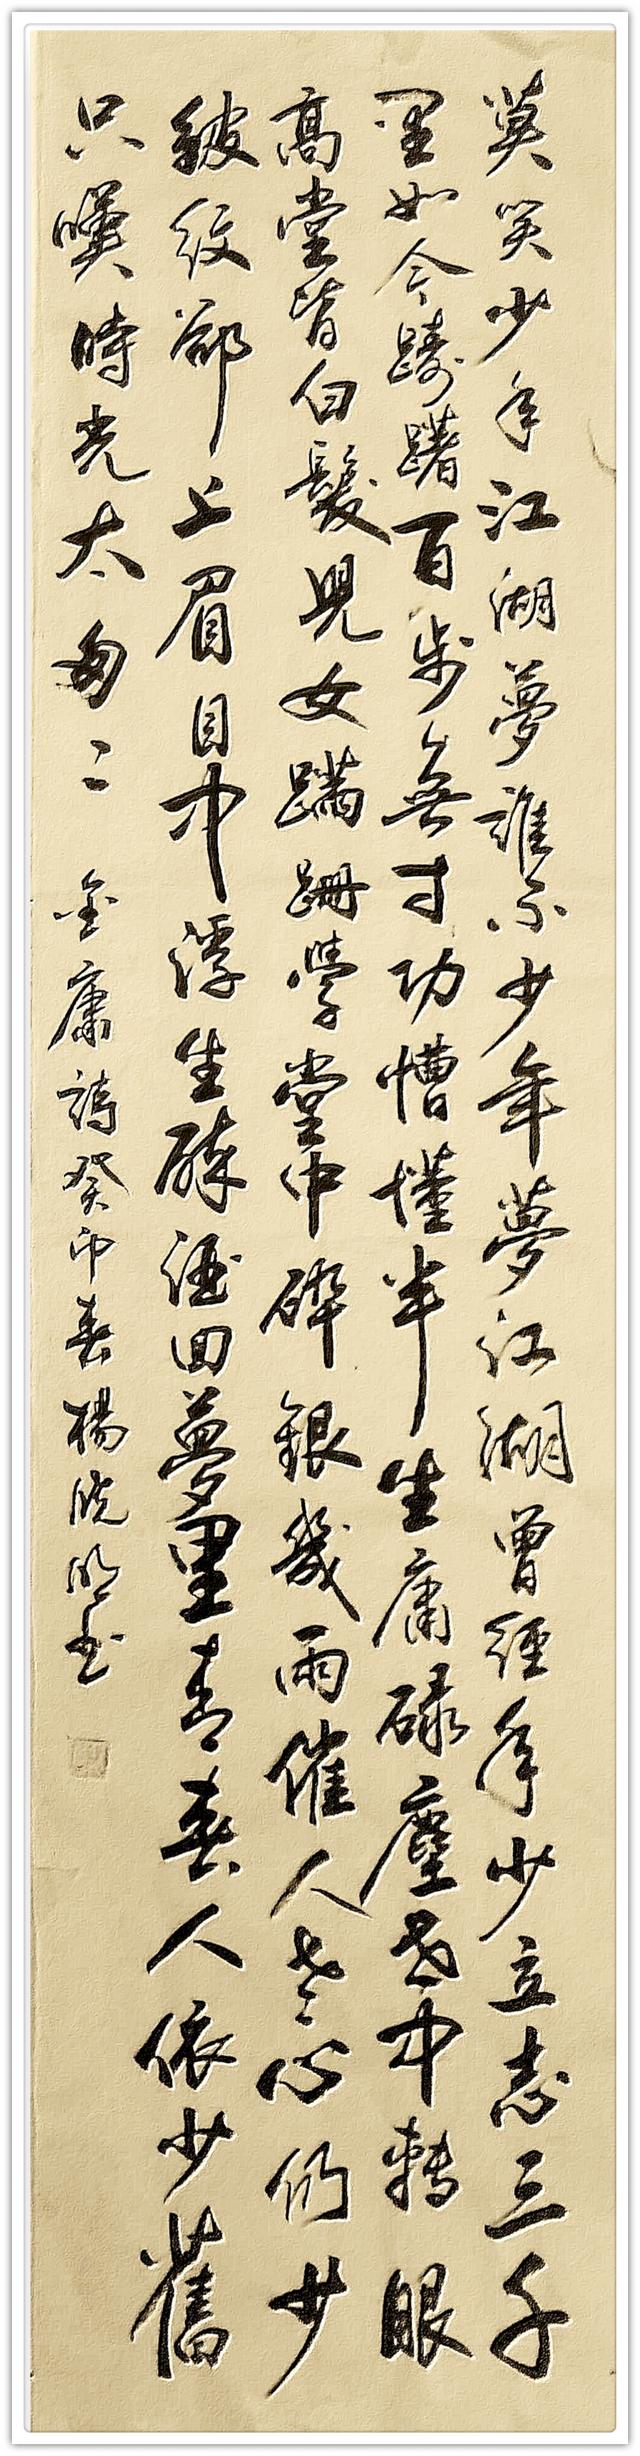 莫笑少年江湖夢誰不少年夢江湖曾經年少立志三千
里如今躊躇百步無寸功懵懂半生庸碌塵世中轉眼
高堂皆白髮兒女蹣跚學堂中碎銀幾兩催人老心仍少
皺紋卻上眉目中浮生醉酒回夢里青春人依少舊
只嘆時光太匆匚
金庸詩癸卯春楊曉明書